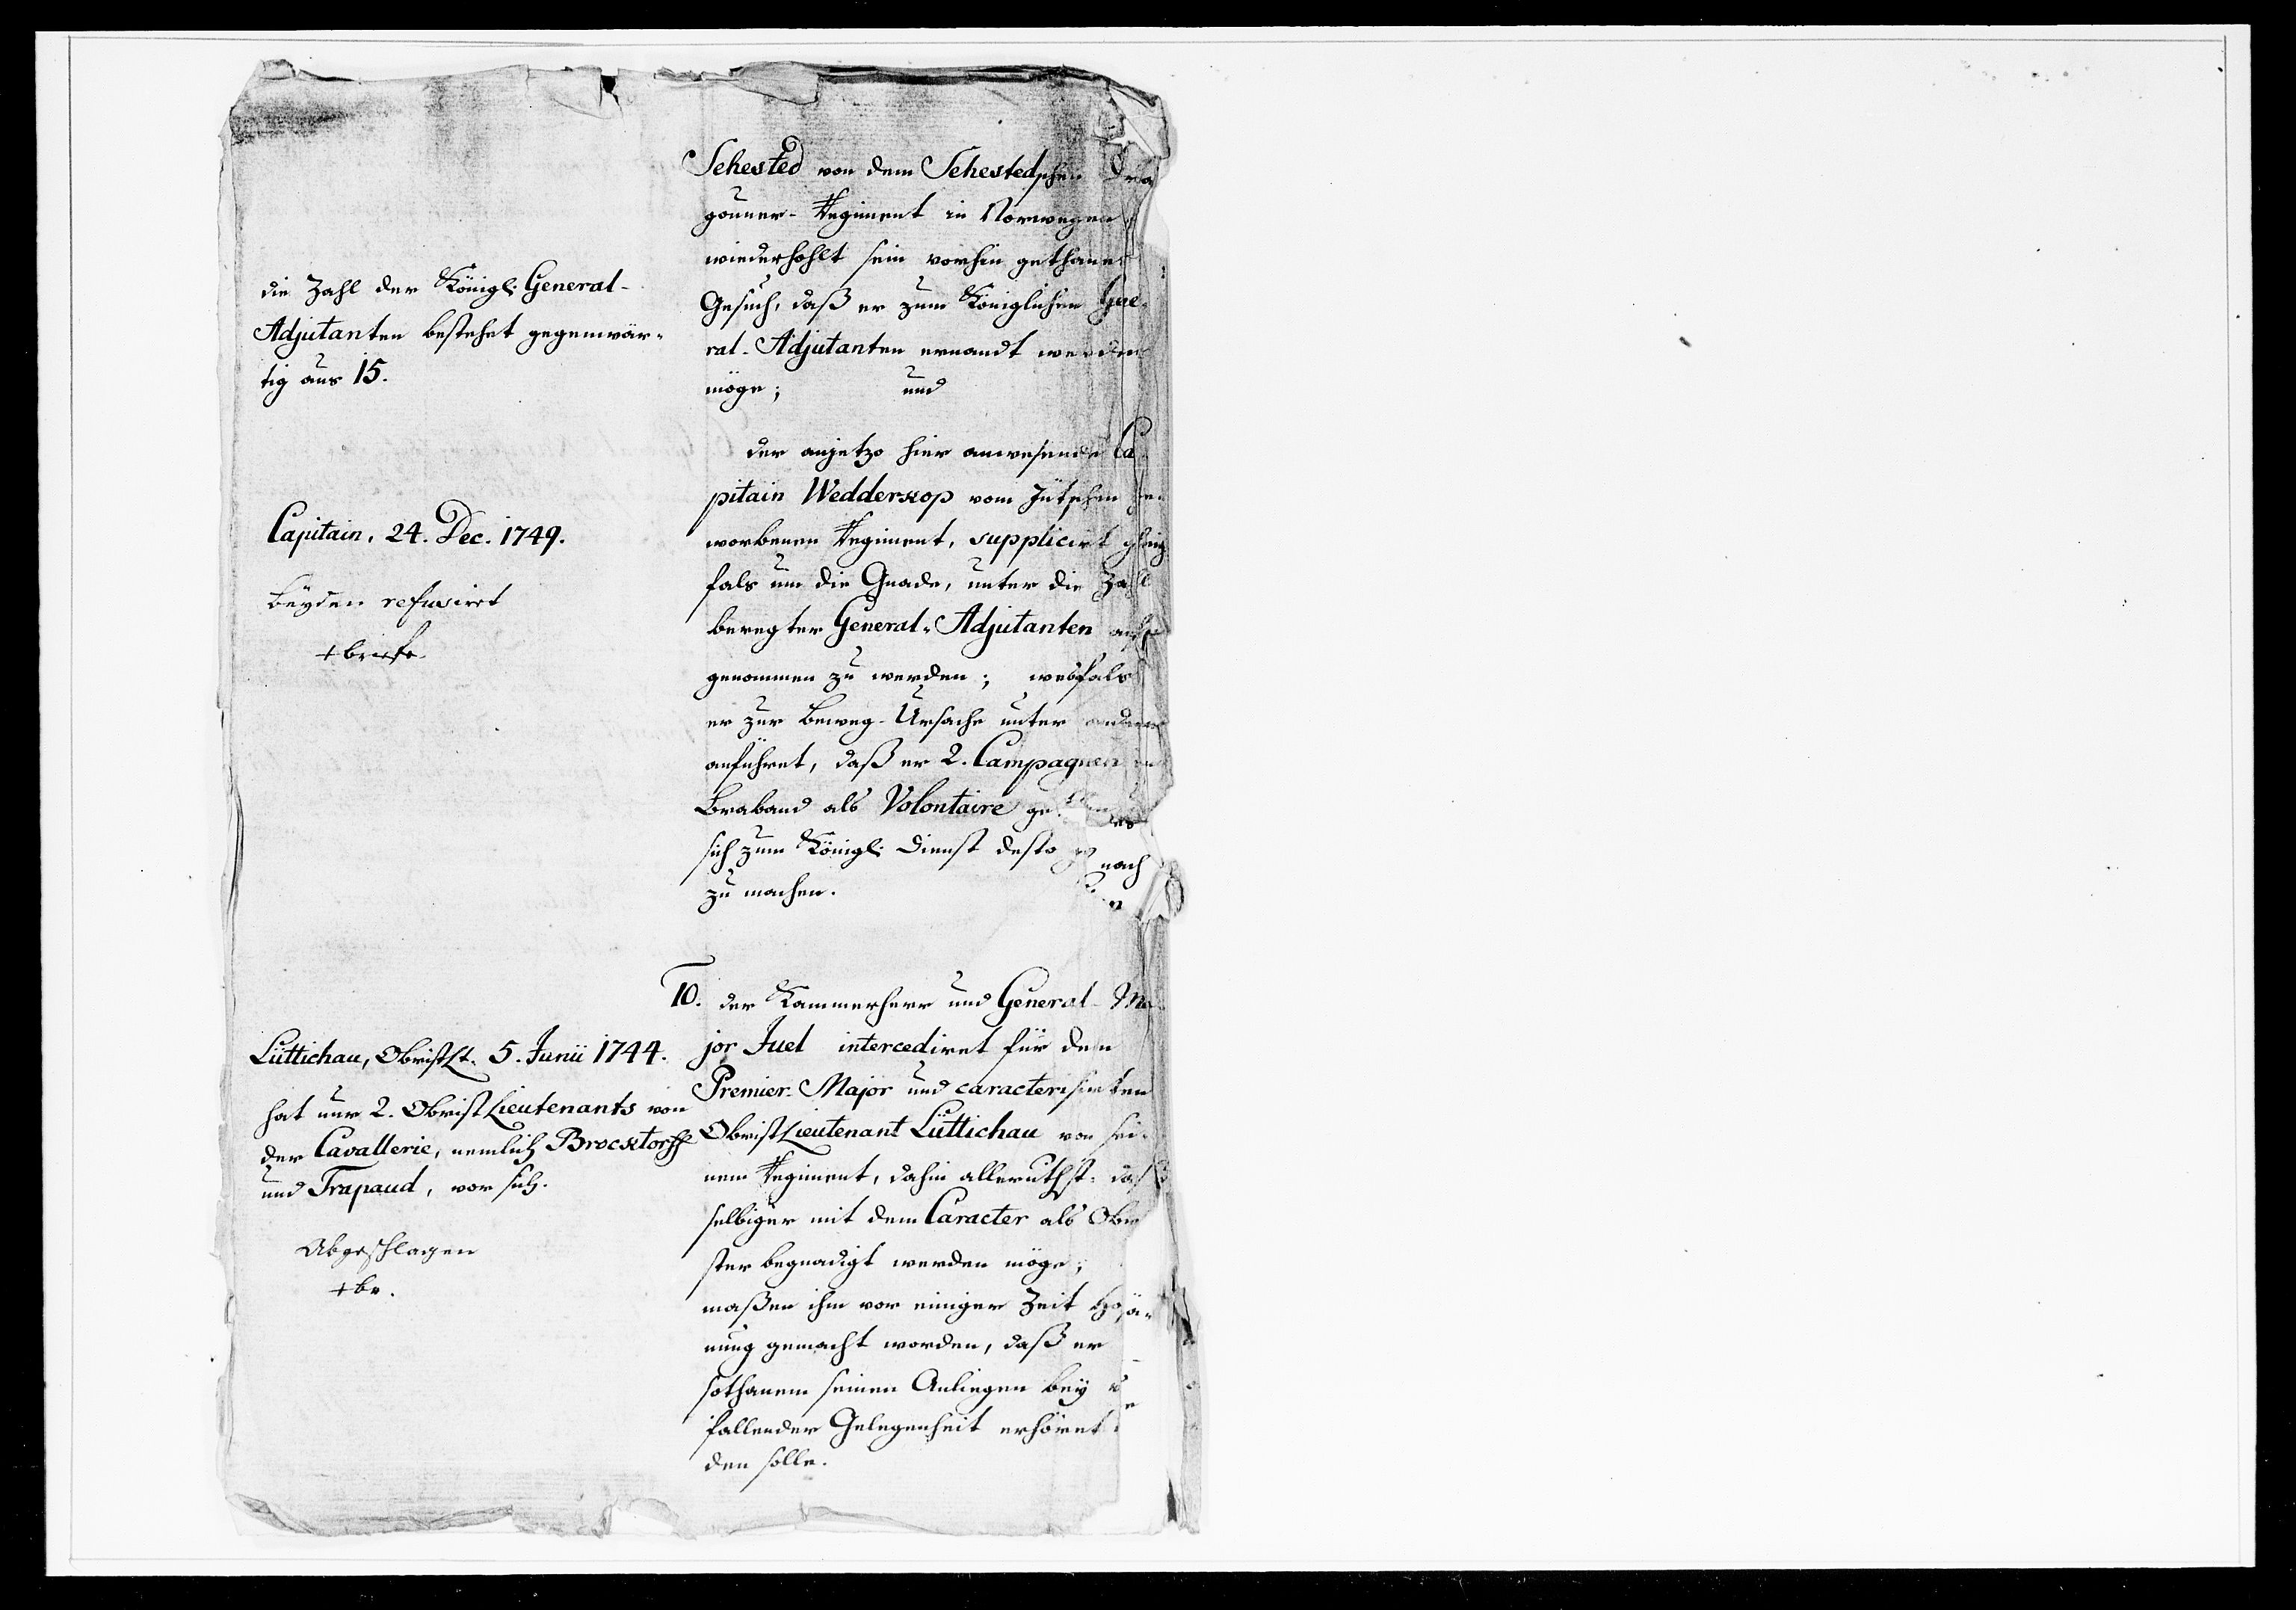 Sehested von dem Sehestedschen Dra
gouner-Regiment in Norwegen
wiederhohlt sein vorhin gethanes
Gesuch, daß er zum Königlichen Gne-
ral-Adjutanten ernandt werden
möge; und
die Zahl der Königl. General-
Adjutanten bestehet gegenwär-
tig aus 15.
der anjetzo hier anwesende Ca-
pitain Wedderkop vom Jütschen ge-
worbenen Regiment, supplicirt gleich
fals um die Gnade, unter die Zahl
beregter General-Adjutanten auf
genommen zu werden; wesfals
er zur Beweg-Ursache unter andern
anführet, daß er 2. Campagnen in
Braband als Volontaire
sich zum Königl. Dienst desto
zu machen.
Capitain, 24. Dec. 1749.
beyden refusirt
+ briefe
10. der Kammerherr und General-Ma-
jor Juel intercediret für den
Premier-Major und caracterisirten
ObristLieutenant Lüttichau von sei-
nem Regiment, dahin allerunthst. daß
selbiger mit dem Caracter als Obri
ster begnadigt werden möge;
maßen ihm vor einiger Zeit
nung gemacht worden, daß er
sothanem seinen Anliegen bey
fallender Gelegenheit erhöret
den solle.
Lüttichau, ObristLt. 5. Junii 1744.
hat nur 2. ObristLieutenants von
der Cavallerie, nemlich Brocktorff
und Trapaud, vor sich.
Abgeschlagen
+ br.
nach